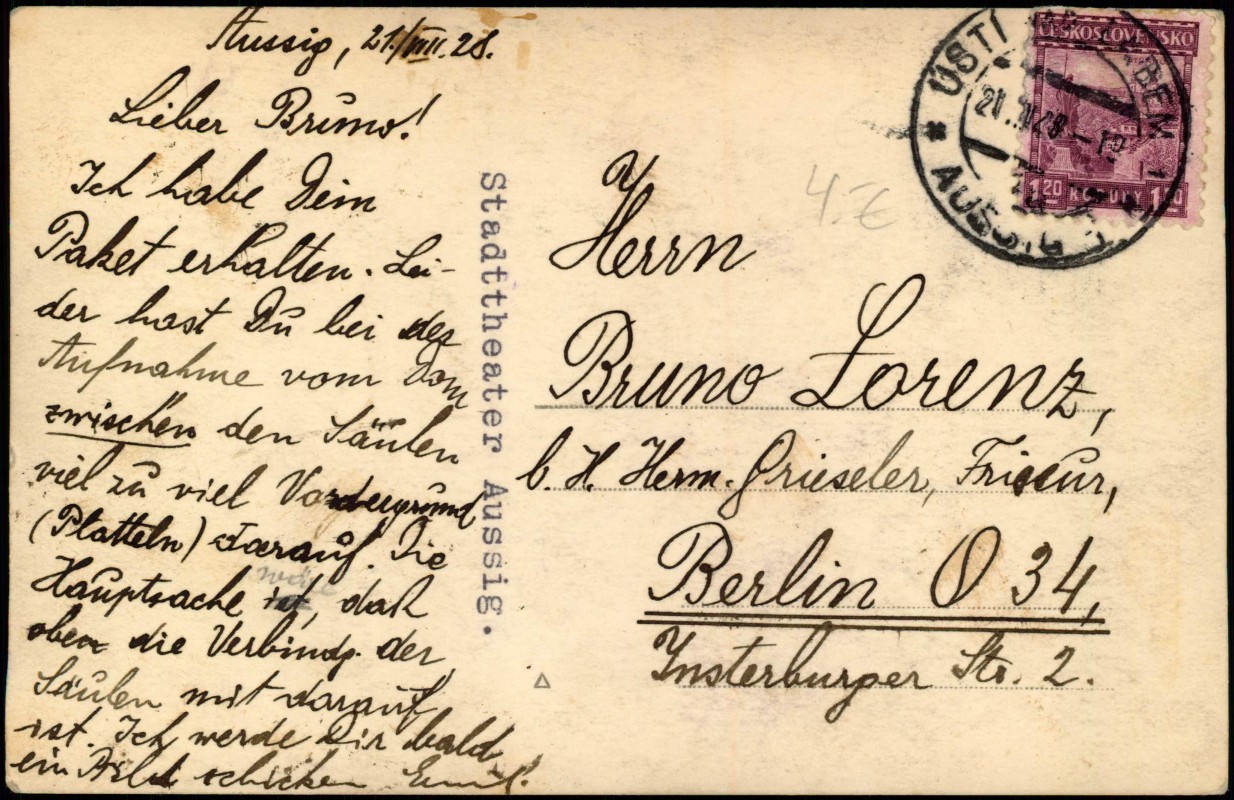 Aussig, 21./VIII.28.
Lieber Bruno!
Ich habe Dein
Paket erhalten. Lei-
der hast Du bei der
Aufnahme vom Dom
zwischen den Säulen
viel zu viel Vordergrund
(Platteln) darauf. Die
Hauptsache ist, daß
wäre
oben die Verbindg. der
Säulen mit darauf
ist. Ich werde Dir bald
ein Bild schicken Emil.
Stadttheater Aussig.
4.-€
ČESKOSLOVENSKO
1.20 KORUNY 1.20
ÚSTÍ NAD LABEM 1
21. 28 - 19
AUSSIG
Herrn
Bruno Lorenz,
b. H. Herm. Grieseler, Friseur,
Berlin O 34,
Insterburger Str. 2.